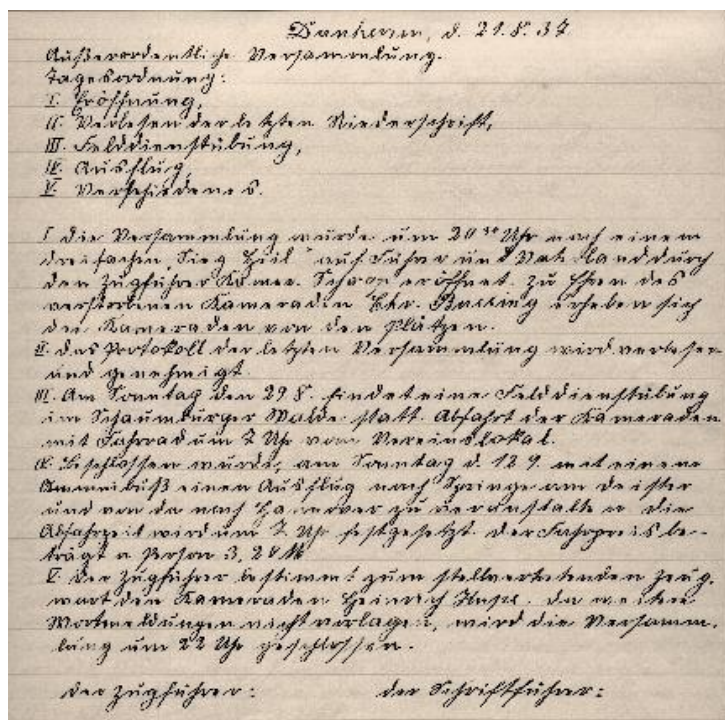 Dankersen, d. 21.8.37
Außerordentliche Versammlung.
Tagesordnung:
I. Eröffnung,
II. Verlesen der letzten Niederschrift,
III. Felddienstübung,
IV. Ausflug,
V. Verschiedenes.
I. Die Versammlung wurde um 20³⁰ Uhr nach einem
dreifachen „Sieg Heil" auf Führer und Vaterland durch
den Zugführer Kamer. eröffnet. Zu Ehren des
verstorbenen Kameraden erheben sich
die Kameraden von den Plätzen.
II. Das Protokoll der letzten Versammlung wird verlesen
und genehmigt.
III. Am Sonntag den 29.8. findet eine Felddienstübung
im Schaumburger Walde statt. Abfahrt der Kameraden
mit Fahrrad um 7 Uhr vom Vereinslokal.
IV. Beschlossen wurde, am Sonntag d. 12.9. mit einem
Ommnibuß einen Ausflug nach Springe am Deister
und von da nach Hannover zu veranstalten. Die
Abfahrzeit wird um 7 Uhr festgesetzt. Der Fahrpreis be-
trägt a Person 3,20 M
V. Der Zugführer bestimmt zum stellvertretenden Zeug-
wart den Kameraden Heinrich. Da weitere
Wortmeldungen nicht vorlagen, wird die Versamm-
lung um 22 Uhr geschlossen.
Der Zugführer: Der Schriftführer: